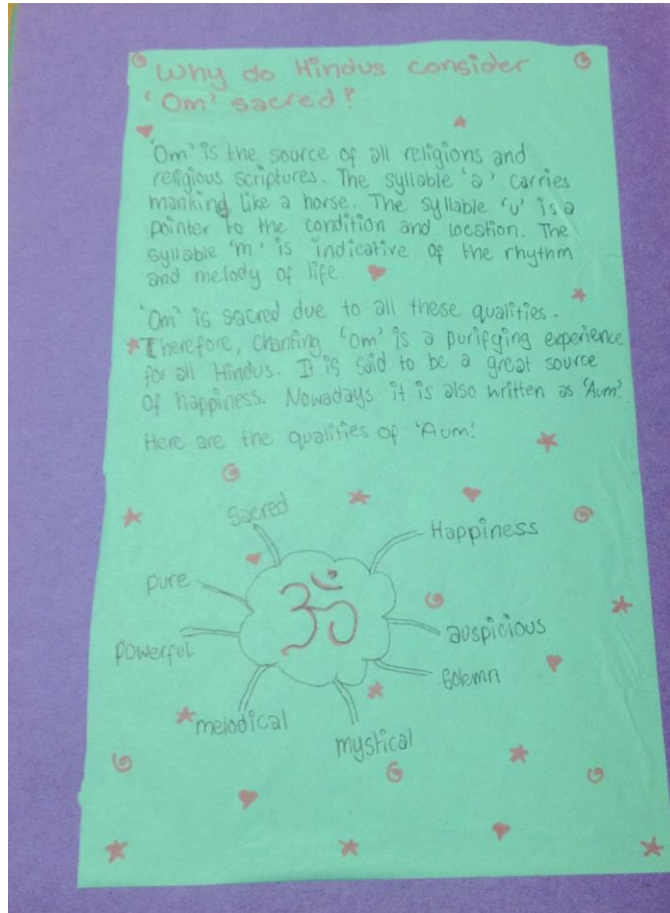 Why do Hindus consider
'Om' sacred?
'Om' is the source of all religions and
religious scriptures. The syllable 'a' carries
mankind like a horse. The syllable 'u' is a
pointer to the condition and location. The
syllable 'm' is indicative of the rhythm
and melody of life.
'Om' is sacred due to all these qualities.
Therefore, chanting 'Om' is a purifying experience
for all Hindus. It is said to be a great source
of happiness. Nowadays it is also written as 'Aum'.
Here are the qualities of 'Aum'.
Sacred
Happiness
pure
ॐ
auspicious
powerful
Solemn
melodical
mystical